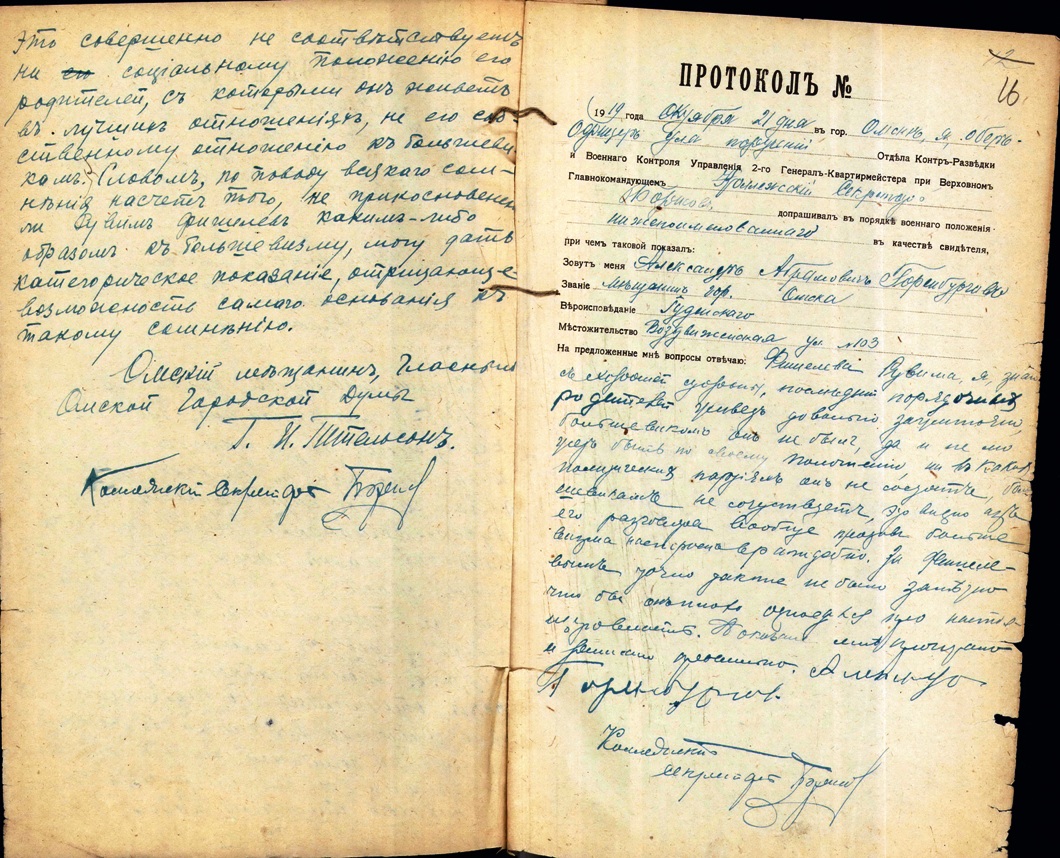 Это совершенно не соотвѣтствуетъ
ни его соціальному положенію его
родителей, съ которыми онъ живетъ
въ лучшихъ отношеніяхъ, не его соб-
ственному отношенію къ большеви-
камъ. Словомъ, по поводу всякаго сом-
нѣнія насчетъ того, не прикосновенъ
ли Рувимъ Фишелевъ какимъ-либо
образомъ къ большевизму, могу дать
категорическое показаніе, отрицающее
возможность самаго основанія къ
такому сомнѣнію.
Омскій мѣщанинъ, Гласный
Омской Городской Думы
Г. И. Штельсонъ.
Коллежскій Секретарь
12
16
ПРОТОКОЛЪ №
1919 года Октября 21 дня въ гор. Омскѣ, я, оберъ-
Офицеръ для порученій Отдѣла Контръ-Развѣдки
и Военнаго Контроля Управленія 2-го Генералъ-Квартирмейстера при Верховномъ
Главнокомандующемъ Коллежскій Секретарь
допрашивалъ въ порядкѣ военнаго положенія
нижепоимянованнаго въ качествѣ свидѣтеля,
при чемъ таковой показалъ:
Зовутъ меня Александръ Абрамовичъ
Званіе мѣщанинъ гор. Омска
Вѣроисповѣданіе Іудейскаго
Мѣстожительство Воздвиженская ул №103
На предложенные мнѣ вопросы отвѣчаю: Фишелева Рувима, я, знаю
съ хорошей стороны, последній порядочныхъ
родителей живетъ довольно зажиточно,
большевикомъ онъ не былъ, да и не мо
жетъ быть по своему положенію, ни въ какихъ
политическихъ партіяхъ онъ не состоитъ, боль
шевикамъ не сочувствуетъ, это видно изъ
его разговора вообще противъ больше
визма настроенъ враждебно. За Фишеле
вымъ точно также не было замѣчно
что бы онъ плохо отзывался про насто
Коллежскій
секретарь